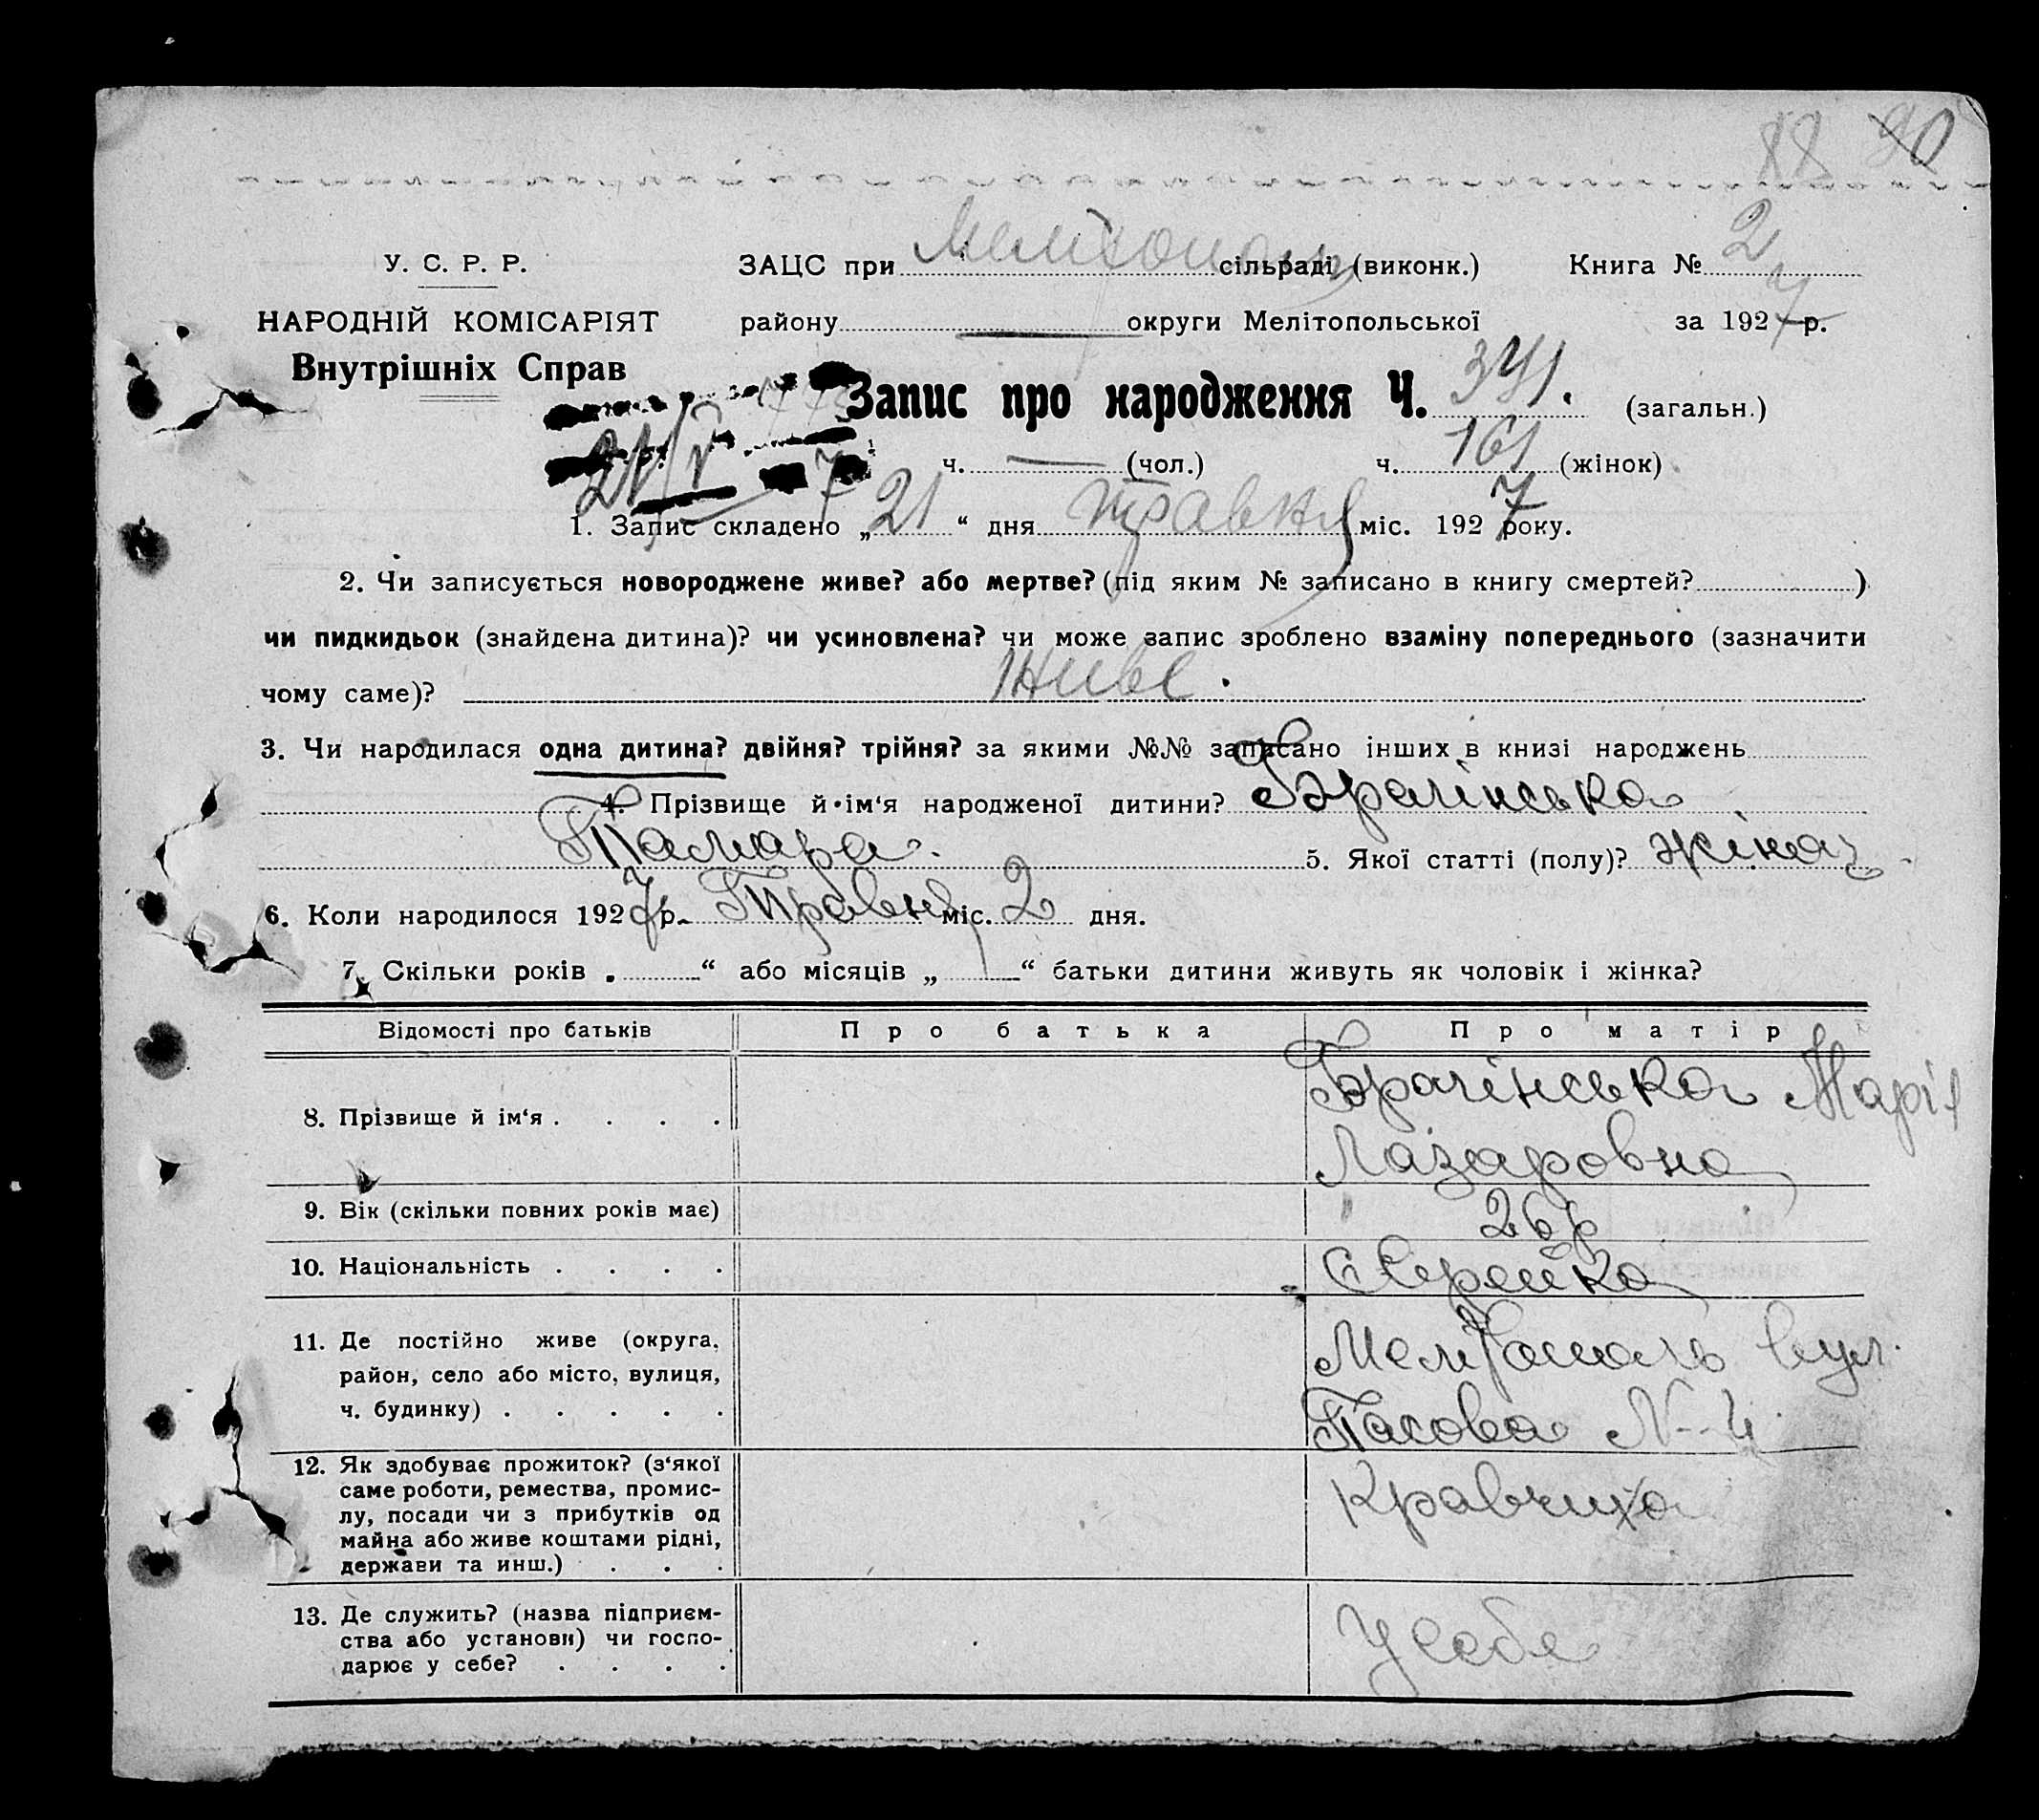 88 90
У. С. Р. Р. ЗАЦС при Мелітополь сільраді (виконк.) Книга № 2
НАРОДНІЙ КОМІСАРІЯТ району — округи Мелітопольської за 1927 р.
Внутрішніх Справ
Запис про народження Ч. 341. (загальн.)
21/V 7 ч. — (чол.) ч. 161 (жінок)
1. Запис складено „21“ дня травня міс. 1927 року.
2. Чи записується новороджене живе? або мертве? (під яким № записано в книгу смертей? )
чи пидкидьок (знайдена дитина)? чи усиновлена? чи може запис зроблено взаміну попереднього (зазначити
чому саме)? живе.
3. Чи народилася одна дитина? двійня? трійня? за якими №№ записано інших в книзі народжень
4. Прізвище й ім‘я народженої дитини? Брагінська
Тамара. 5. Якої статті (полу)? жіноч.
6. Коли народилося 1927 р. Травня міс. 2 дня.
7. Скільки років „ “ або місяців „ “ батьки дитини живуть як чоловік і жінка?
Відомості про батьків Про батька Про матір
8. Прізвище й ім‘я . . . . Брагінська Марія
Лазаровна
9. Вік (скільки повних років має) 26 р
10. Національність . . . . Єврейка
11. Де постійно живе (округа, Мелітополь вул.
район, село або місто, вулиця,
ч. будинку) . . . . . № 4
12. Як здобуває прожиток? (з‘якої Кравчиха
саме роботи, ремества, промис-
лу, посади чи з прибутків од
майна або живе коштами рідні,
держави та инш.) . . .
13. Де служить? (назва підприєм- У себе
ства або установи) чи госпо-
дарює у себе? . . . .